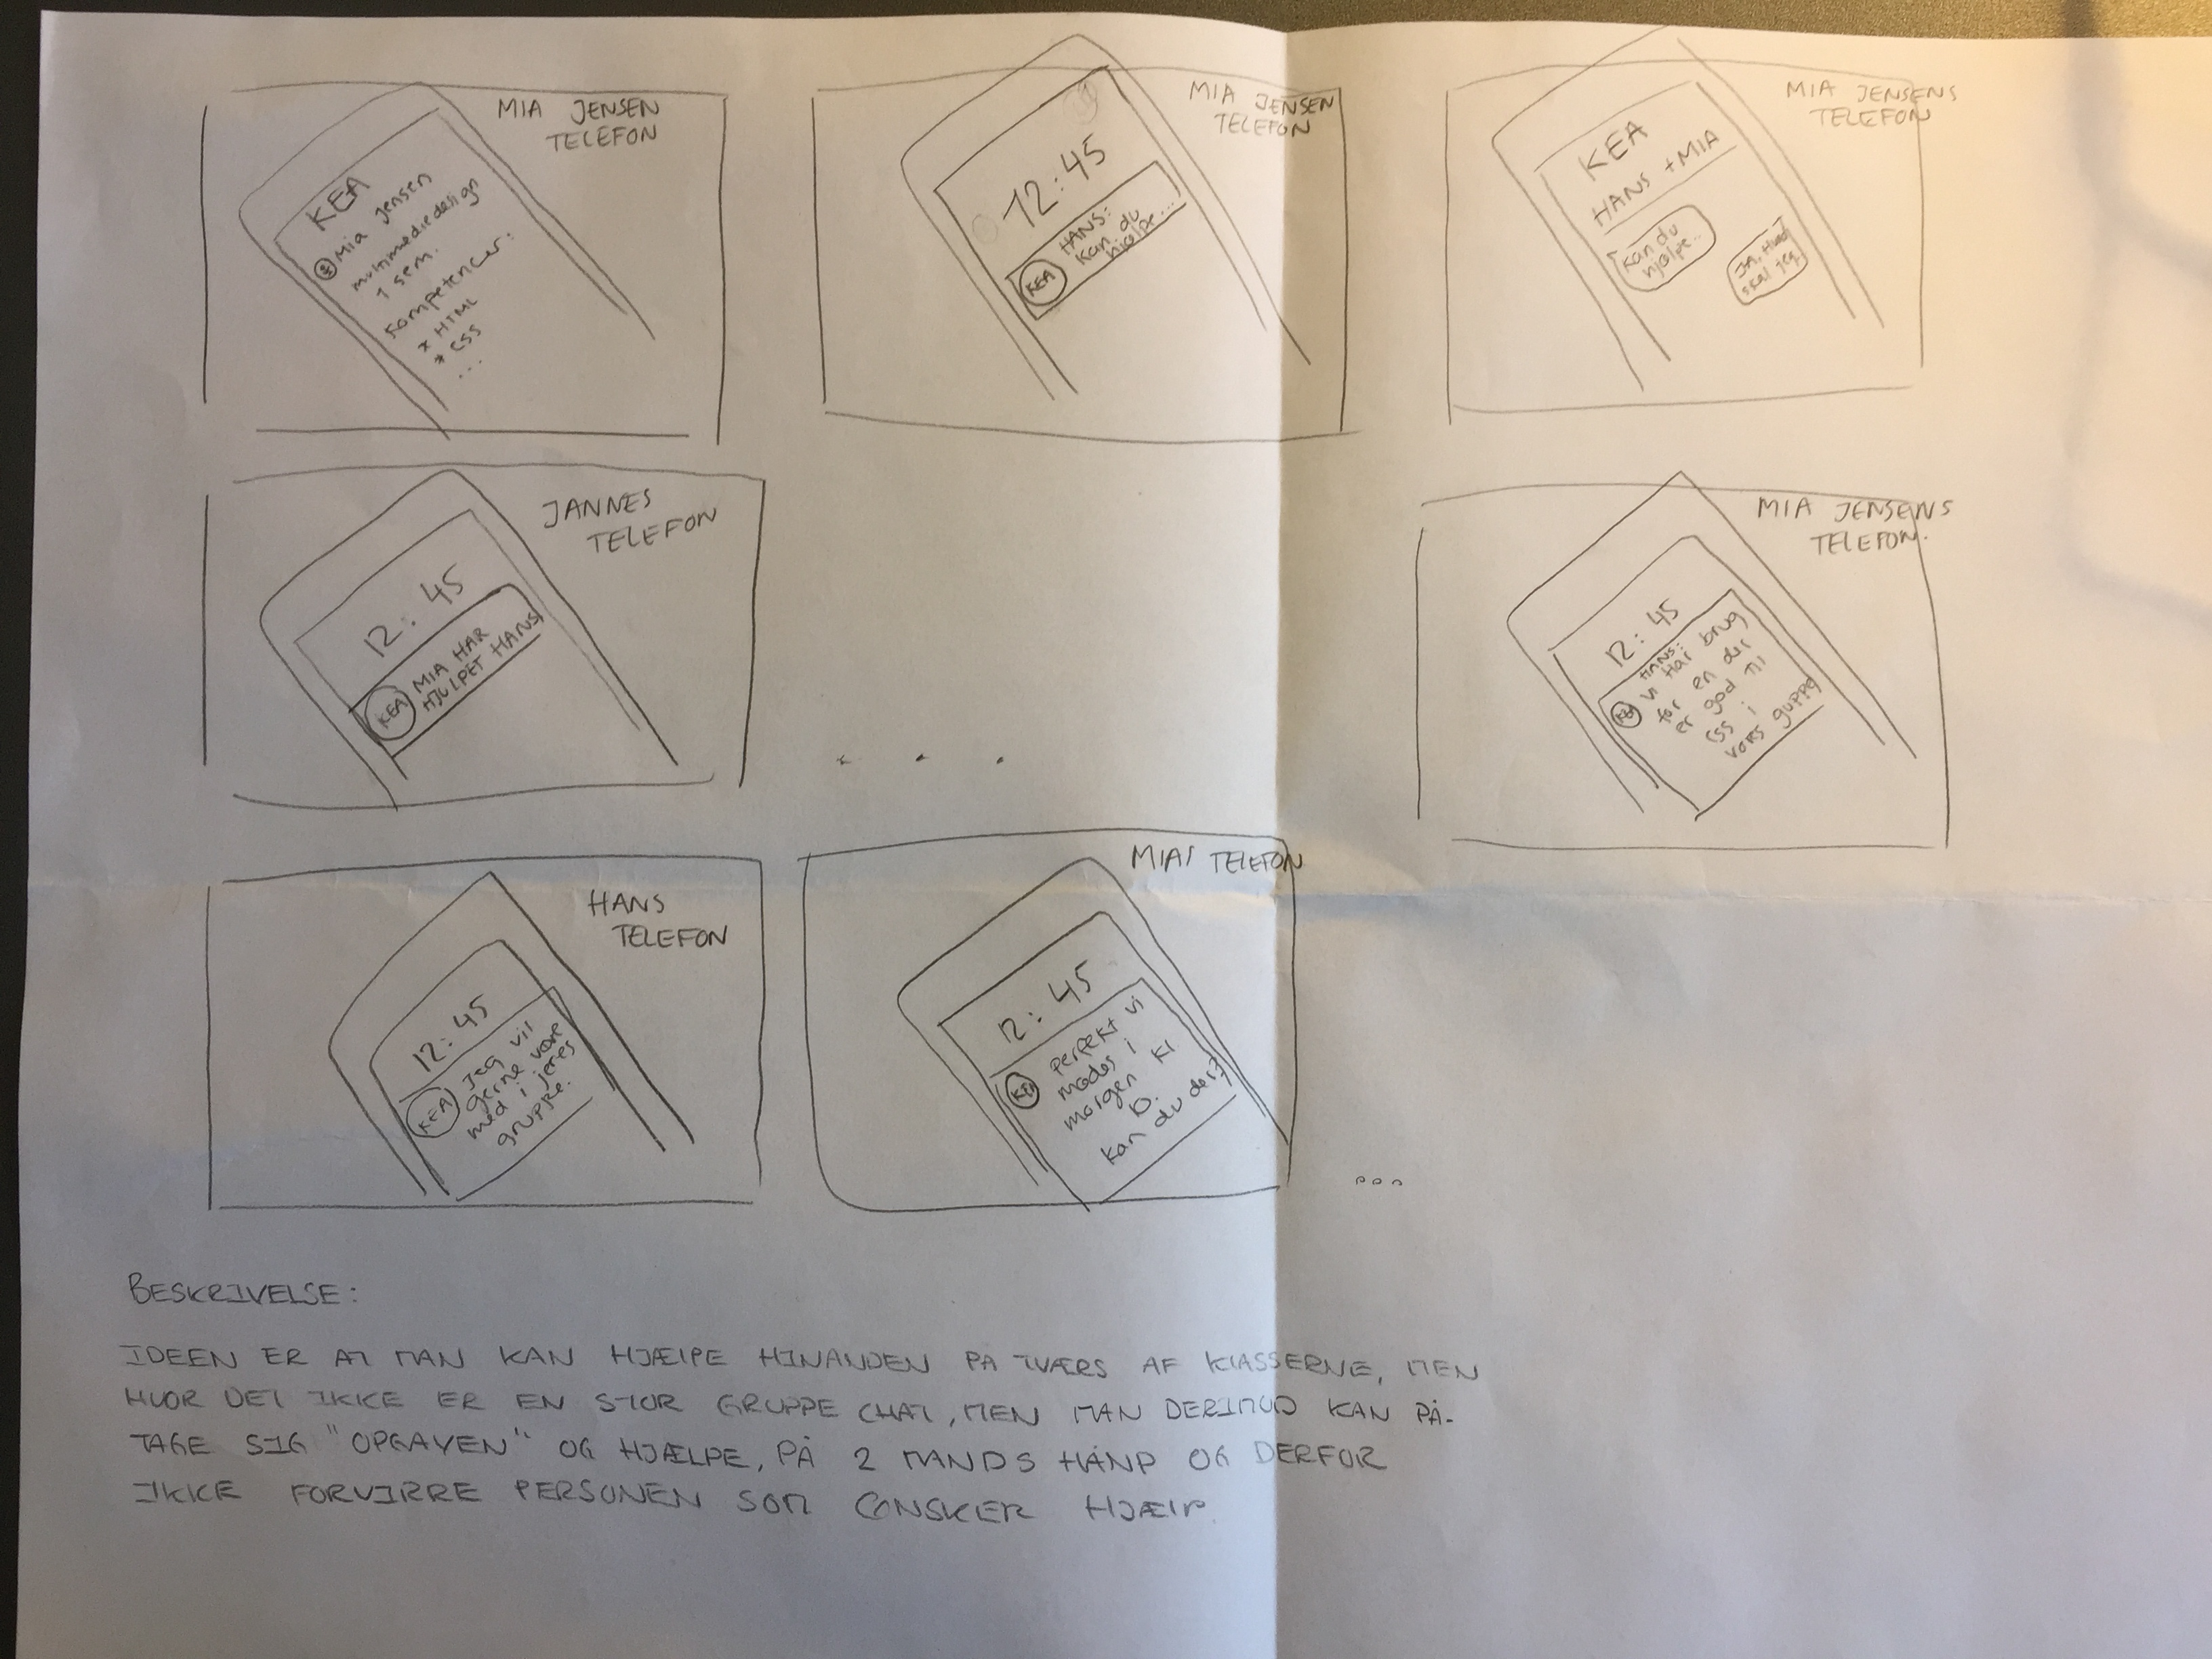 MIA JENSEN
TELEFON
KEA
Mia Jensen
multimediedesign
1 sem.
Kompetencer:
* HTML
* CSS
...
MIA JENSEN
TELEFON
12:45
KEA HANS: du
kan hjælpe...
MIA JENSENS
TELEFON
KEA
HANS + MIA
Kan du
hjælpe..
JA, Hvad
skal jeg
JANNES
TELEFON
12:45
KEA MIA HAR
HJULPET HANS
. . .
MIA JENSENS
TELEFON.
12:45
KEA HANS:
Vi Har brug
for en der
er god til
CSS i
vores guppe
HANS
TELEFON
12:45
KEA Jeg vil
gerne være
med i jeres
gruppe.
MIAS TELEFON
12:45
KEA perfekt vi
mødes i
morgen kl
10.
Kan du der?
...
BESKRIVELSE:
IDEEN ER AT MAN KAN HJÆLPE HINANDEN PÅ TVÆRS AF KLASSERNE, MEN
HVOR DET IKKE ER EN STOR GRUPPE CHAT, MEN MAN DERIMOD KAN PÅ-
TAGE SIG "OPGAVEN" OG HJÆLPE, PÅ 2 MANDS HÅND OG DERFOR
IKKE FORVIRRE PERSONEN SOM ØNSKER HJÆLP.